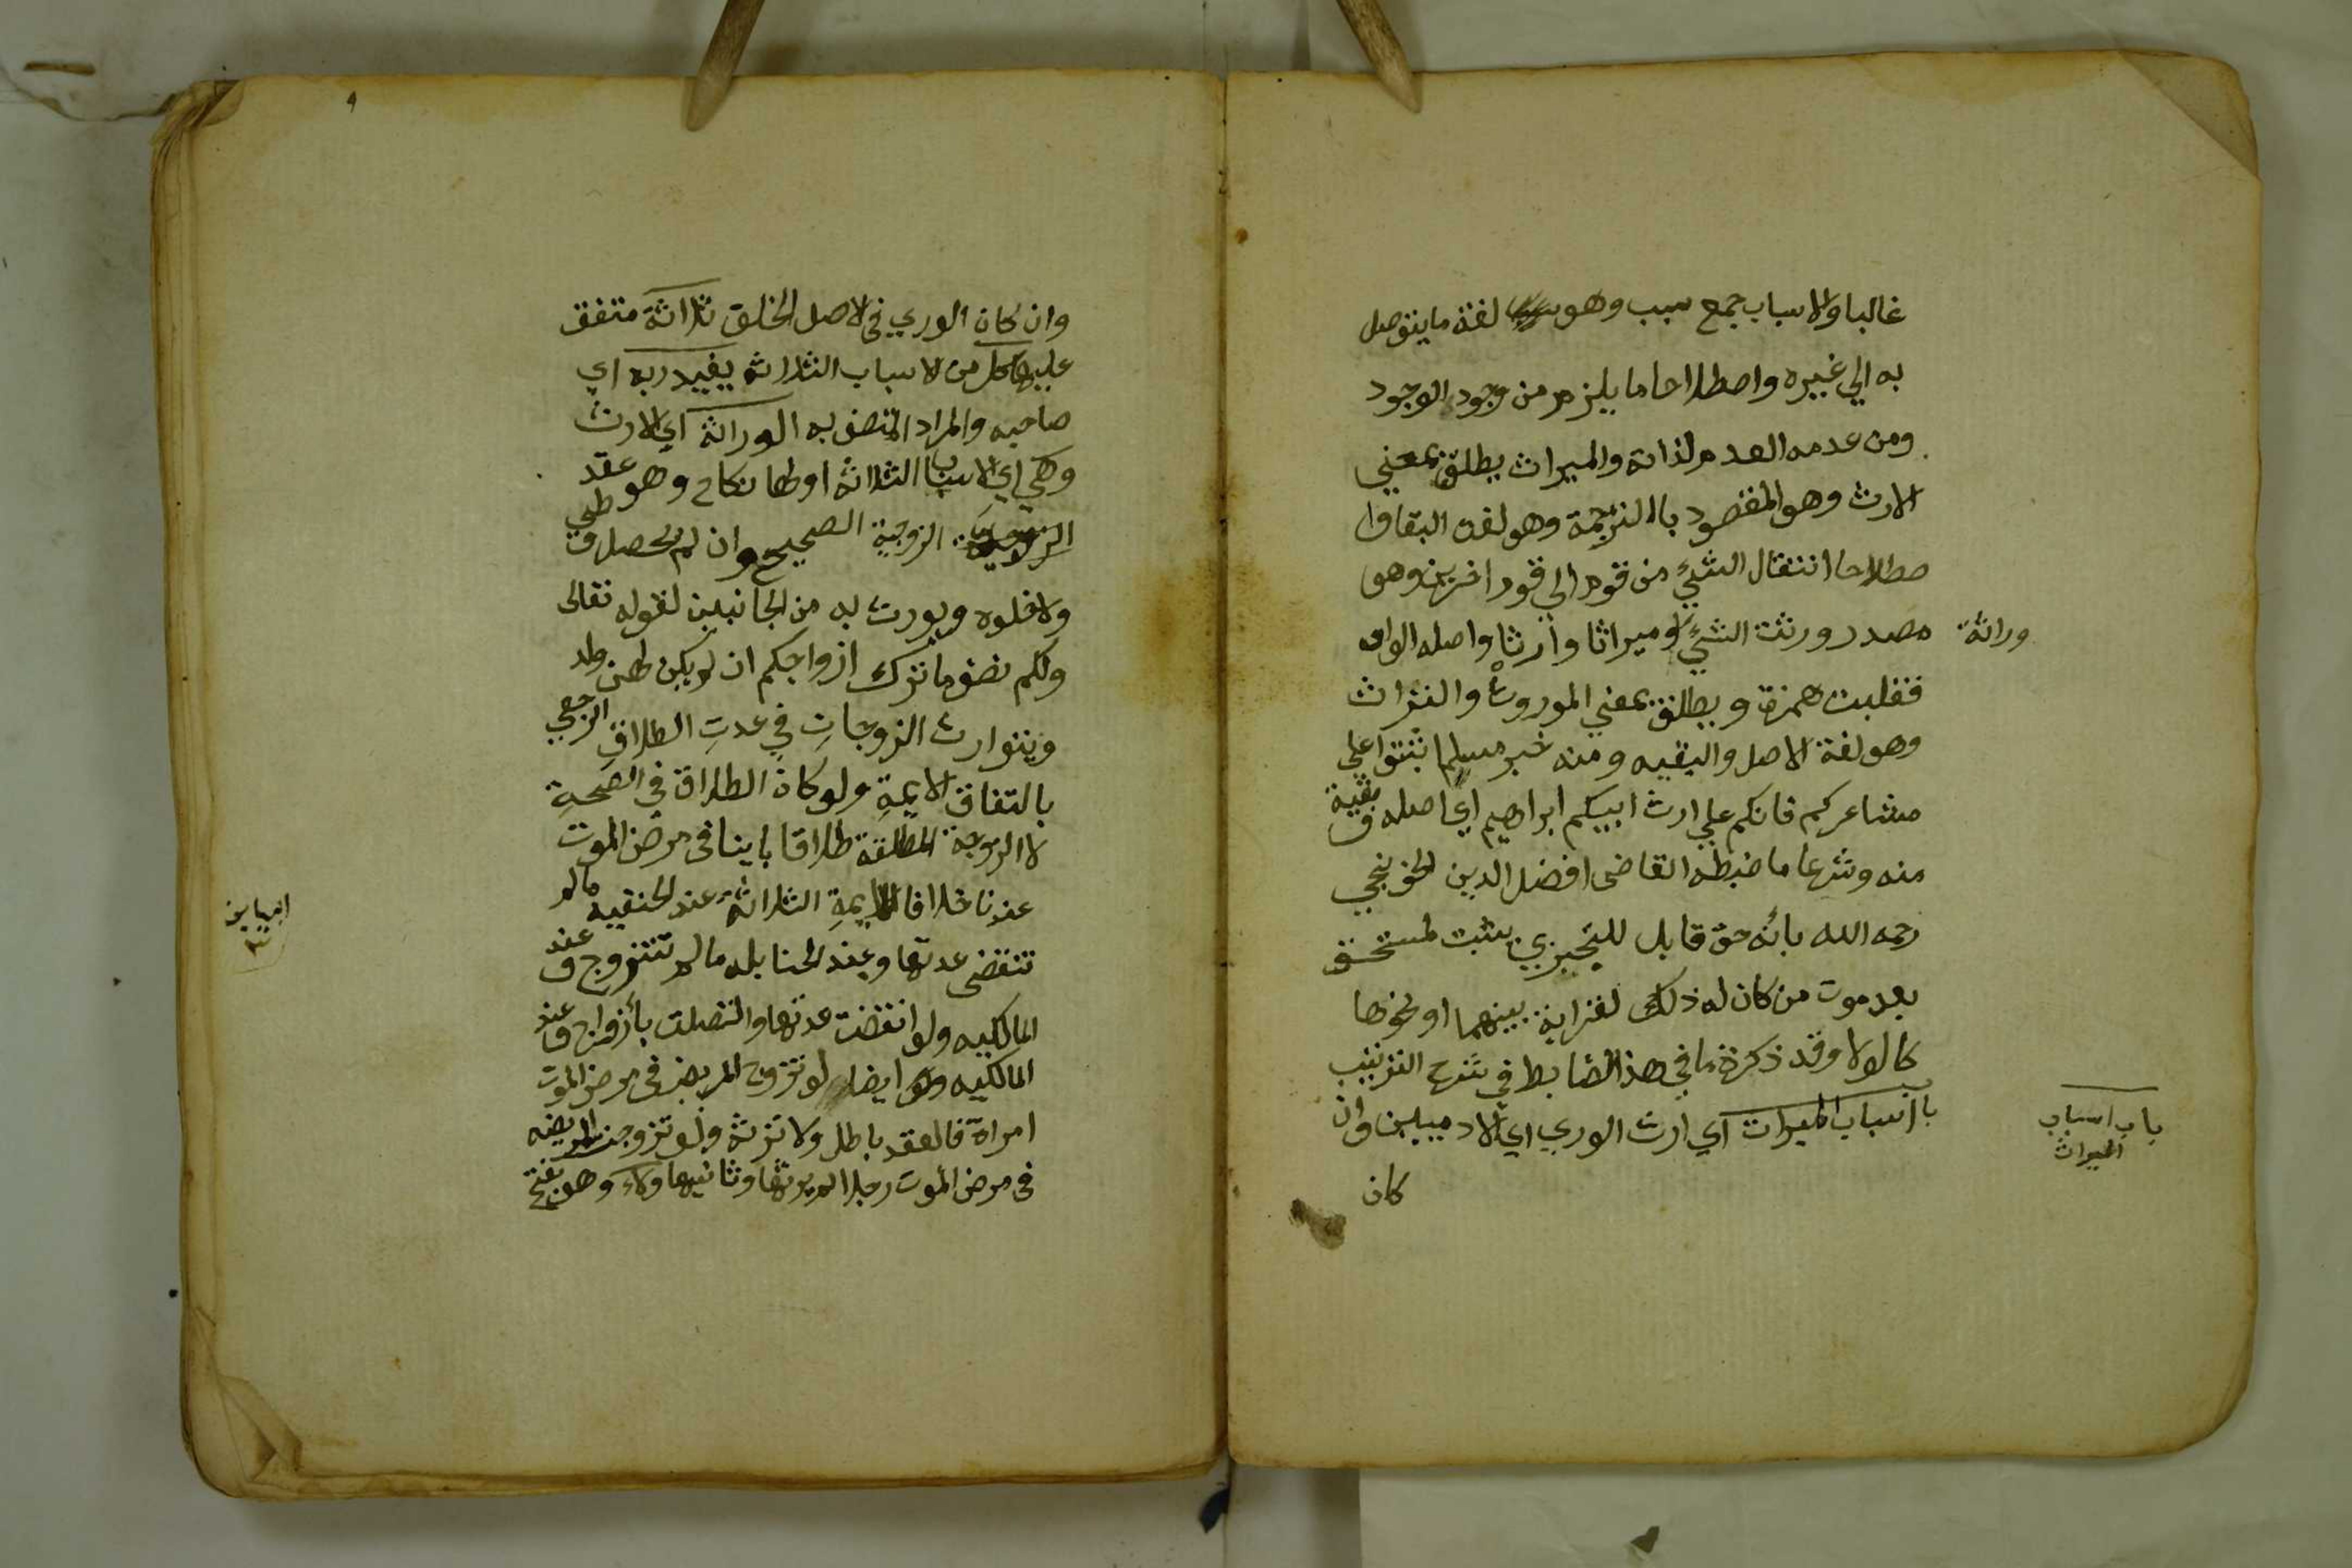 غالبا والاسباب جمع سبب وهو لغة ما يتوصل
به الي غيره واصطلاحا ما يلزم من وجود الوجود
ومن عدمه العدم لذاته والميراث يطلق بمعني
الارث وهو المقصود بالترجمة وهو لغة البقا وا
صطلاحا انتقال الشيء من قوم الي قوم اخرين وهو
مصدر ورثت الشيء وميراثا وارثا واصله الواو
وراثة
فقلبت همزة ويطلق بمعني الموروث والتراث
وهو لغة الاصل والبقيه ومنه خبر مسلم اثبتوا علي
مشاعركم فانكم علي ارث ابيكم ابراهيم اي اصله وبقية
منه وشرعا ما ضبطه القاضى افضل الدين الخونجي
رحمه الله بانه حق قابل للتجزي يثبت لمستحق
بعد موت من كان له ذلك لقرابة بينهما او نحوها
كالولا وقد ذكرة ما في هذا الضابط في شرح الترتيب
باب اسباب الميراث اي ارث الوري اي الادميين وان
باب اسباب
الميراث
كان
٩
وان كان الوري فى الاصل الخلق ثلاثة متفق
عليها كل من الاسباب الثلاثه يفيد ربه اي
صاحبه والمراد المتصف به الوراثة اي الارث
وهي اي الاسباب الثلاثة اولها نكاح وهو عقد
الزوجية الصحيح وان لم يحصل وطي
ولا خلوه ويورث به من الجانبين لقوله تعالى
ولكم نصف ما ترك ازواجكم ان لم يكن لهن ولد
ويتوارث الزوجات في عدت الطلاق الرجعي
بالتفاق الايمة ولو كان الطلاق في الصحة
لا الزوجة المطلقة طلاقا باينا فى مرض الموت
عندنا خلافا للايمة الثلاثة عند الحنفيه مالم
تنقضى عدتها وعند الحنابله ما لم تتزوج وعند
المالكيه ولو انقضت عدتها واتصلت بأزواج وعند
المالكيه ايضا لو تزوج المريض فى مرض الموت
امراة فالعقد باطل ولا ترثه ولو تزوجت المريضه
فى مرض الموت رجلا لم يرثها وثانيها ولاء وهو بفتح